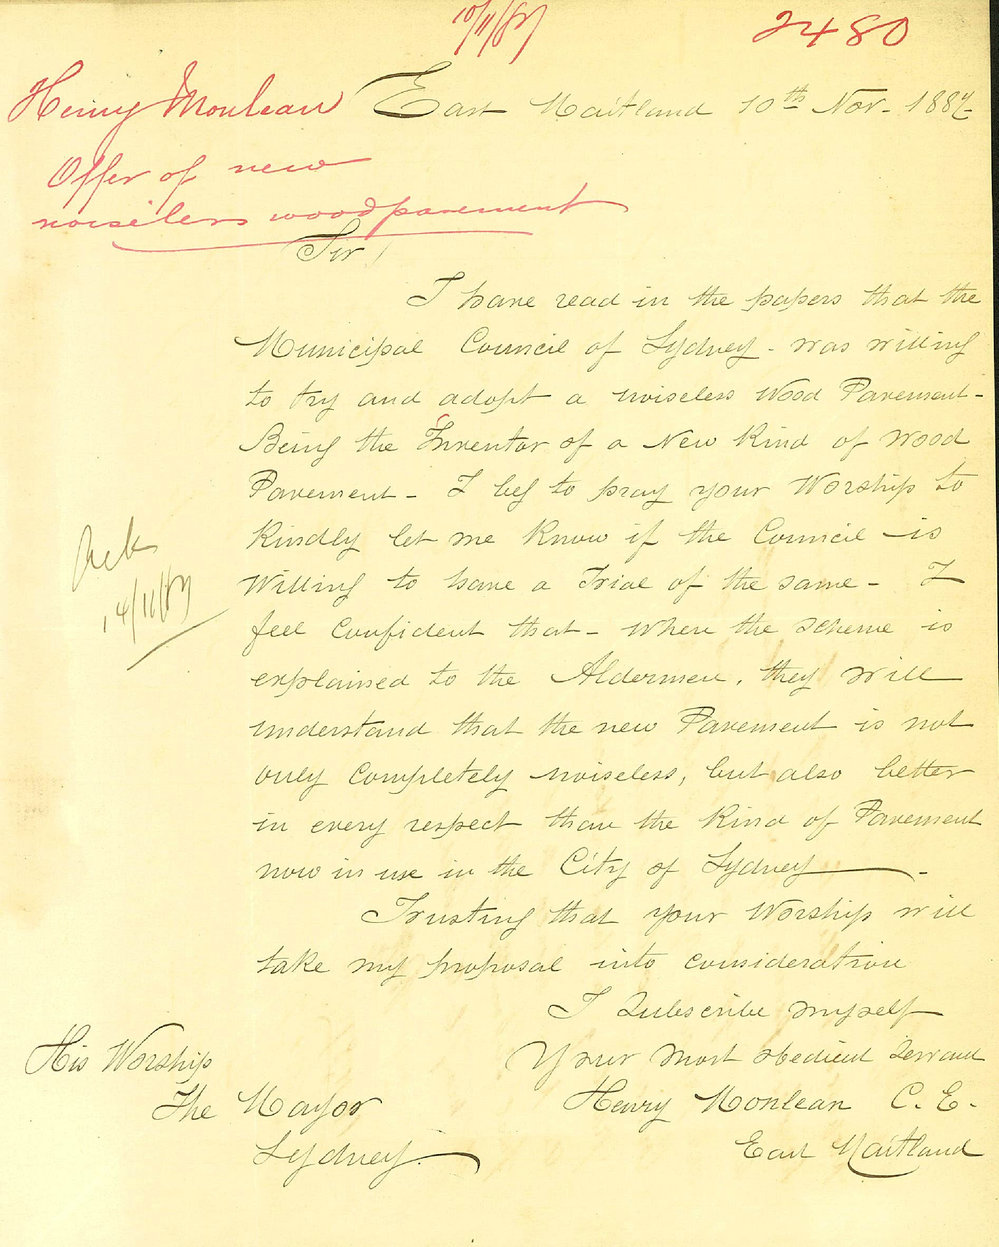 10/11/87
2480
Henry Monlean
Offer of new
noiseless wood pavement
East Maitland 10th Nov. 1887-
Sir,
I have read in the papers that the
Municipal Council of Sydney - was willing
to try and adopt a noiseless Wood Pavement -
Being the Inventor of a New Kind of Wood
Pavement - I beg to pray your Worship to
Kindly let me Know if the Council - is
Willing to have a Trial of the same - I
feel Confident that - when the scheme is
explained to the Aldermen, they will
understand that the new Pavement is not
only Completely noiseless, but also better
in every respect than the Kind of Pavement
now in use in the City of Sydney -
Trusting that your Worship will
take my proposal into consideration
I Subscribe myself
Your most obedient Servant
Henry Monlean C. E.
East Maitland
His Worship
The Mayor
Sydney.
Ack
14/11/87